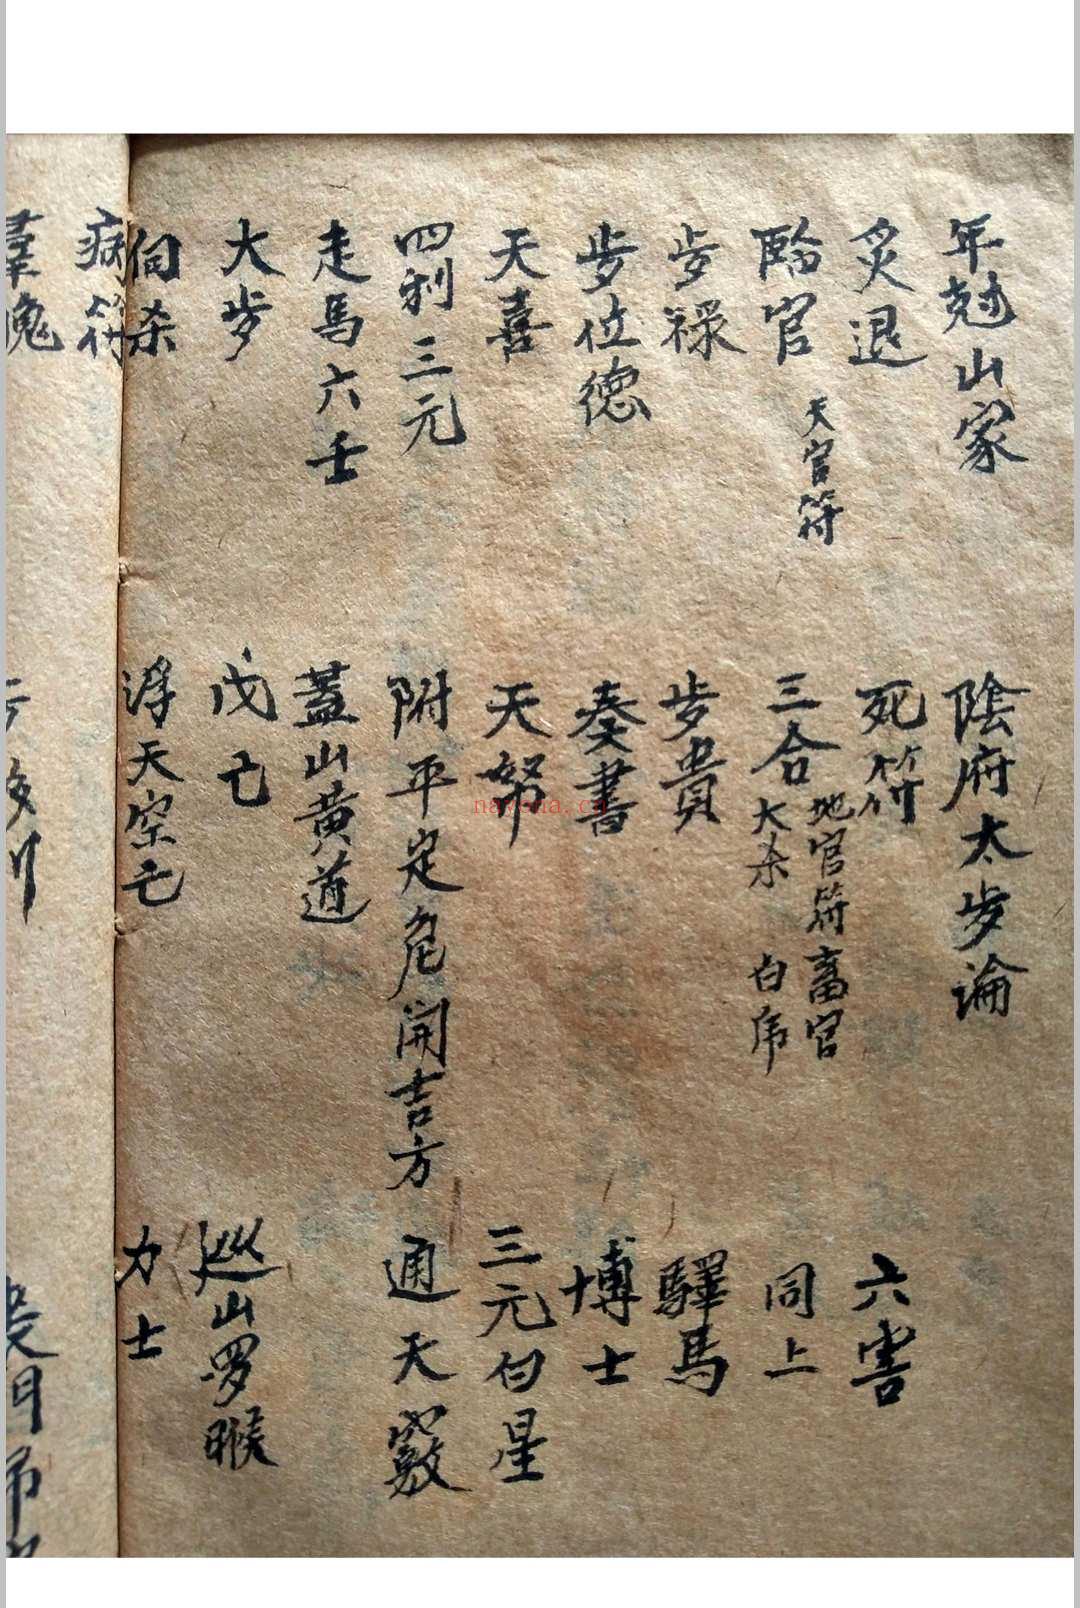 年尅山家 陰府太步論
炙退 死符 六害
臨官 天官符 三合 地官符畜官 大杀 白虎 同上
步禄 步貴 驛馬
步位德 奏書 博士
天喜 天帑 三元白星
四利三元 附平定危開吉方 通天竅
走馬六壬 蓋山黄道
大步 戊亡 巡山罗睺
浮天空亡 力士
病符